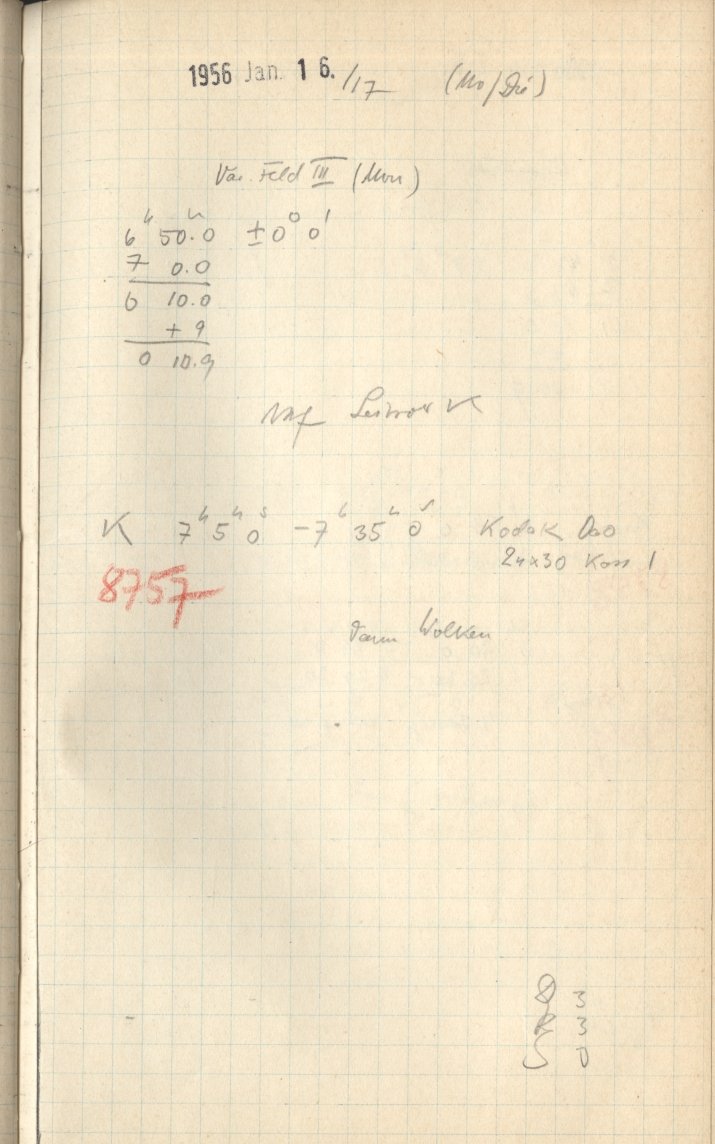 1956 Jan. 16./17 (Mo/Die)
Var. Feld III (Mon)
6ʰ 50.0 ±0° 0'
7 0.0
6 10.0
+ 9
0 10.9
K 7ʰ 5 0ˢ - 7ʰ 35 0ˢ Kodak Oao
24x30 Kass 1
8757
Dann Wolken
3
R 3
S 0